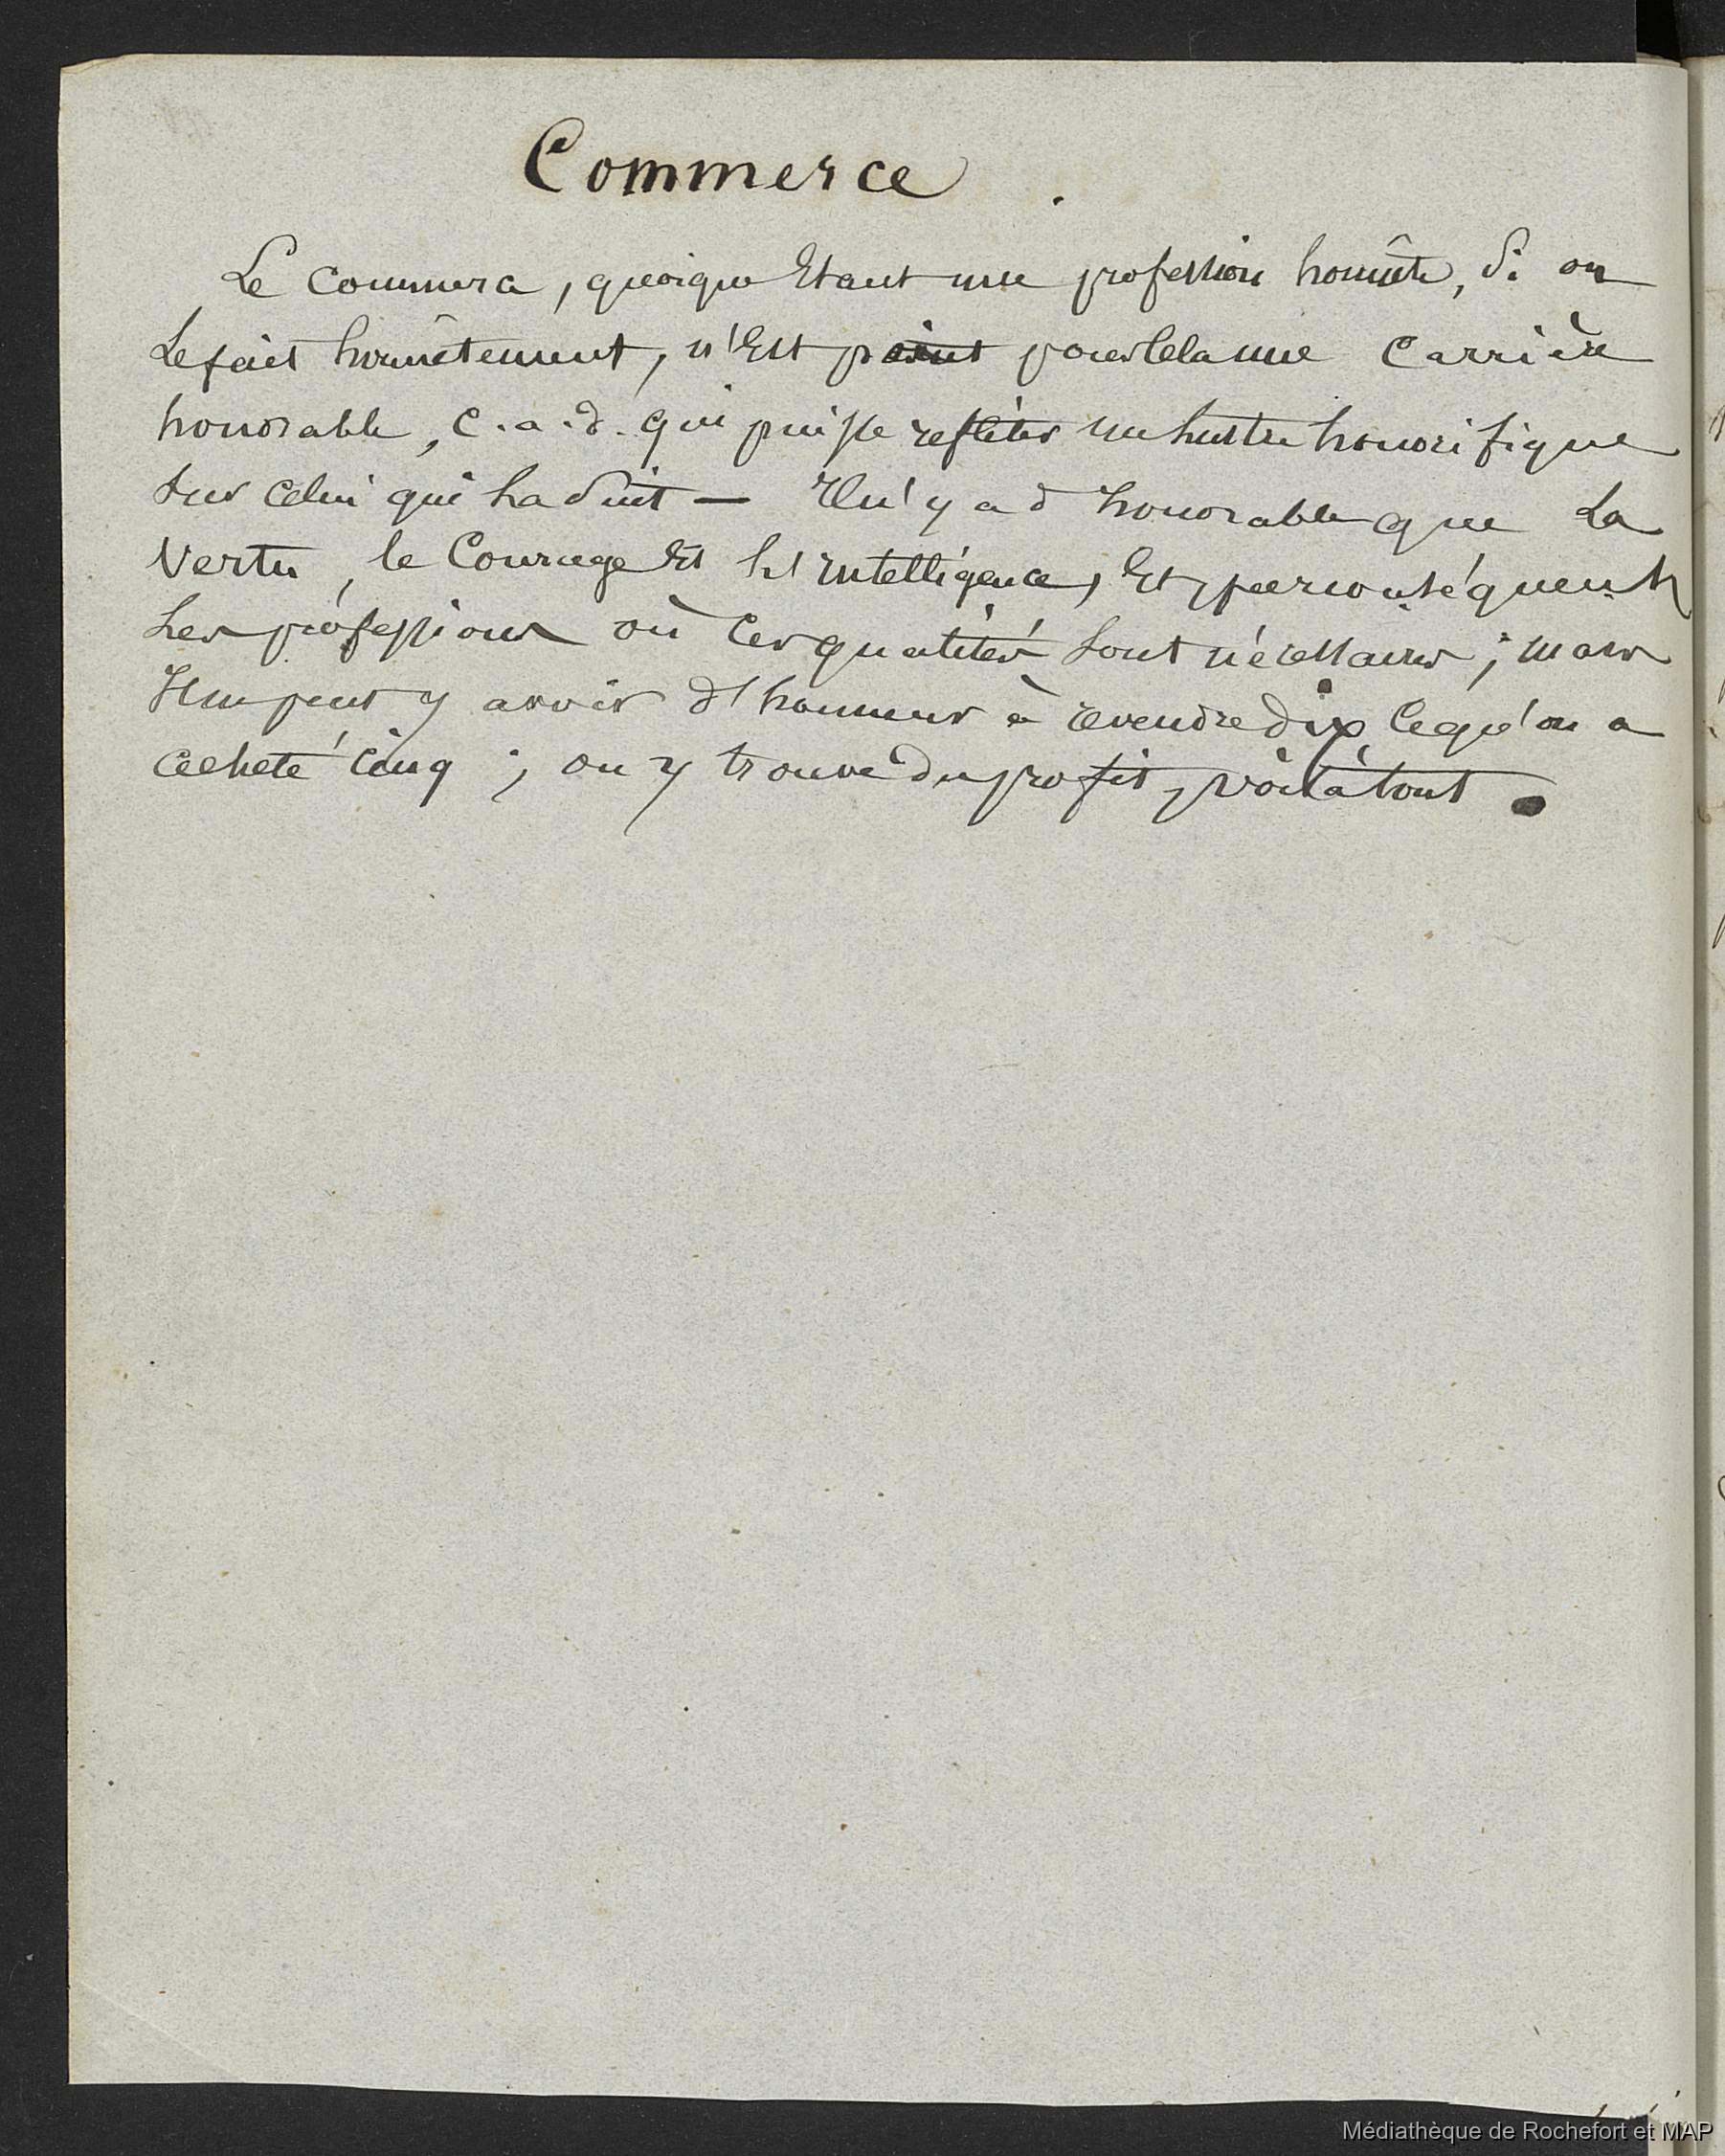 Commerce.
Le commerce, quoique Etant une profession honnête, si on
Le fait honnêtement, n'Est point pour Cela une Carrière
honorable, C.a.d. qui puisse refléter un lustre honorifique
sur celui qui la suit — Il n'y a d'honorable que La
Vertu, le Courage Et l'intelligence, Et, par conséquent,
Les professions où Ces qualités sont nécessaires; mais
Il ne peut y avoir d'honneur à revendre dix Ce qu'on a
acheté Cinq; on y trouve du profit, voilà tout.
Médiathèque de Rochefort et MAP